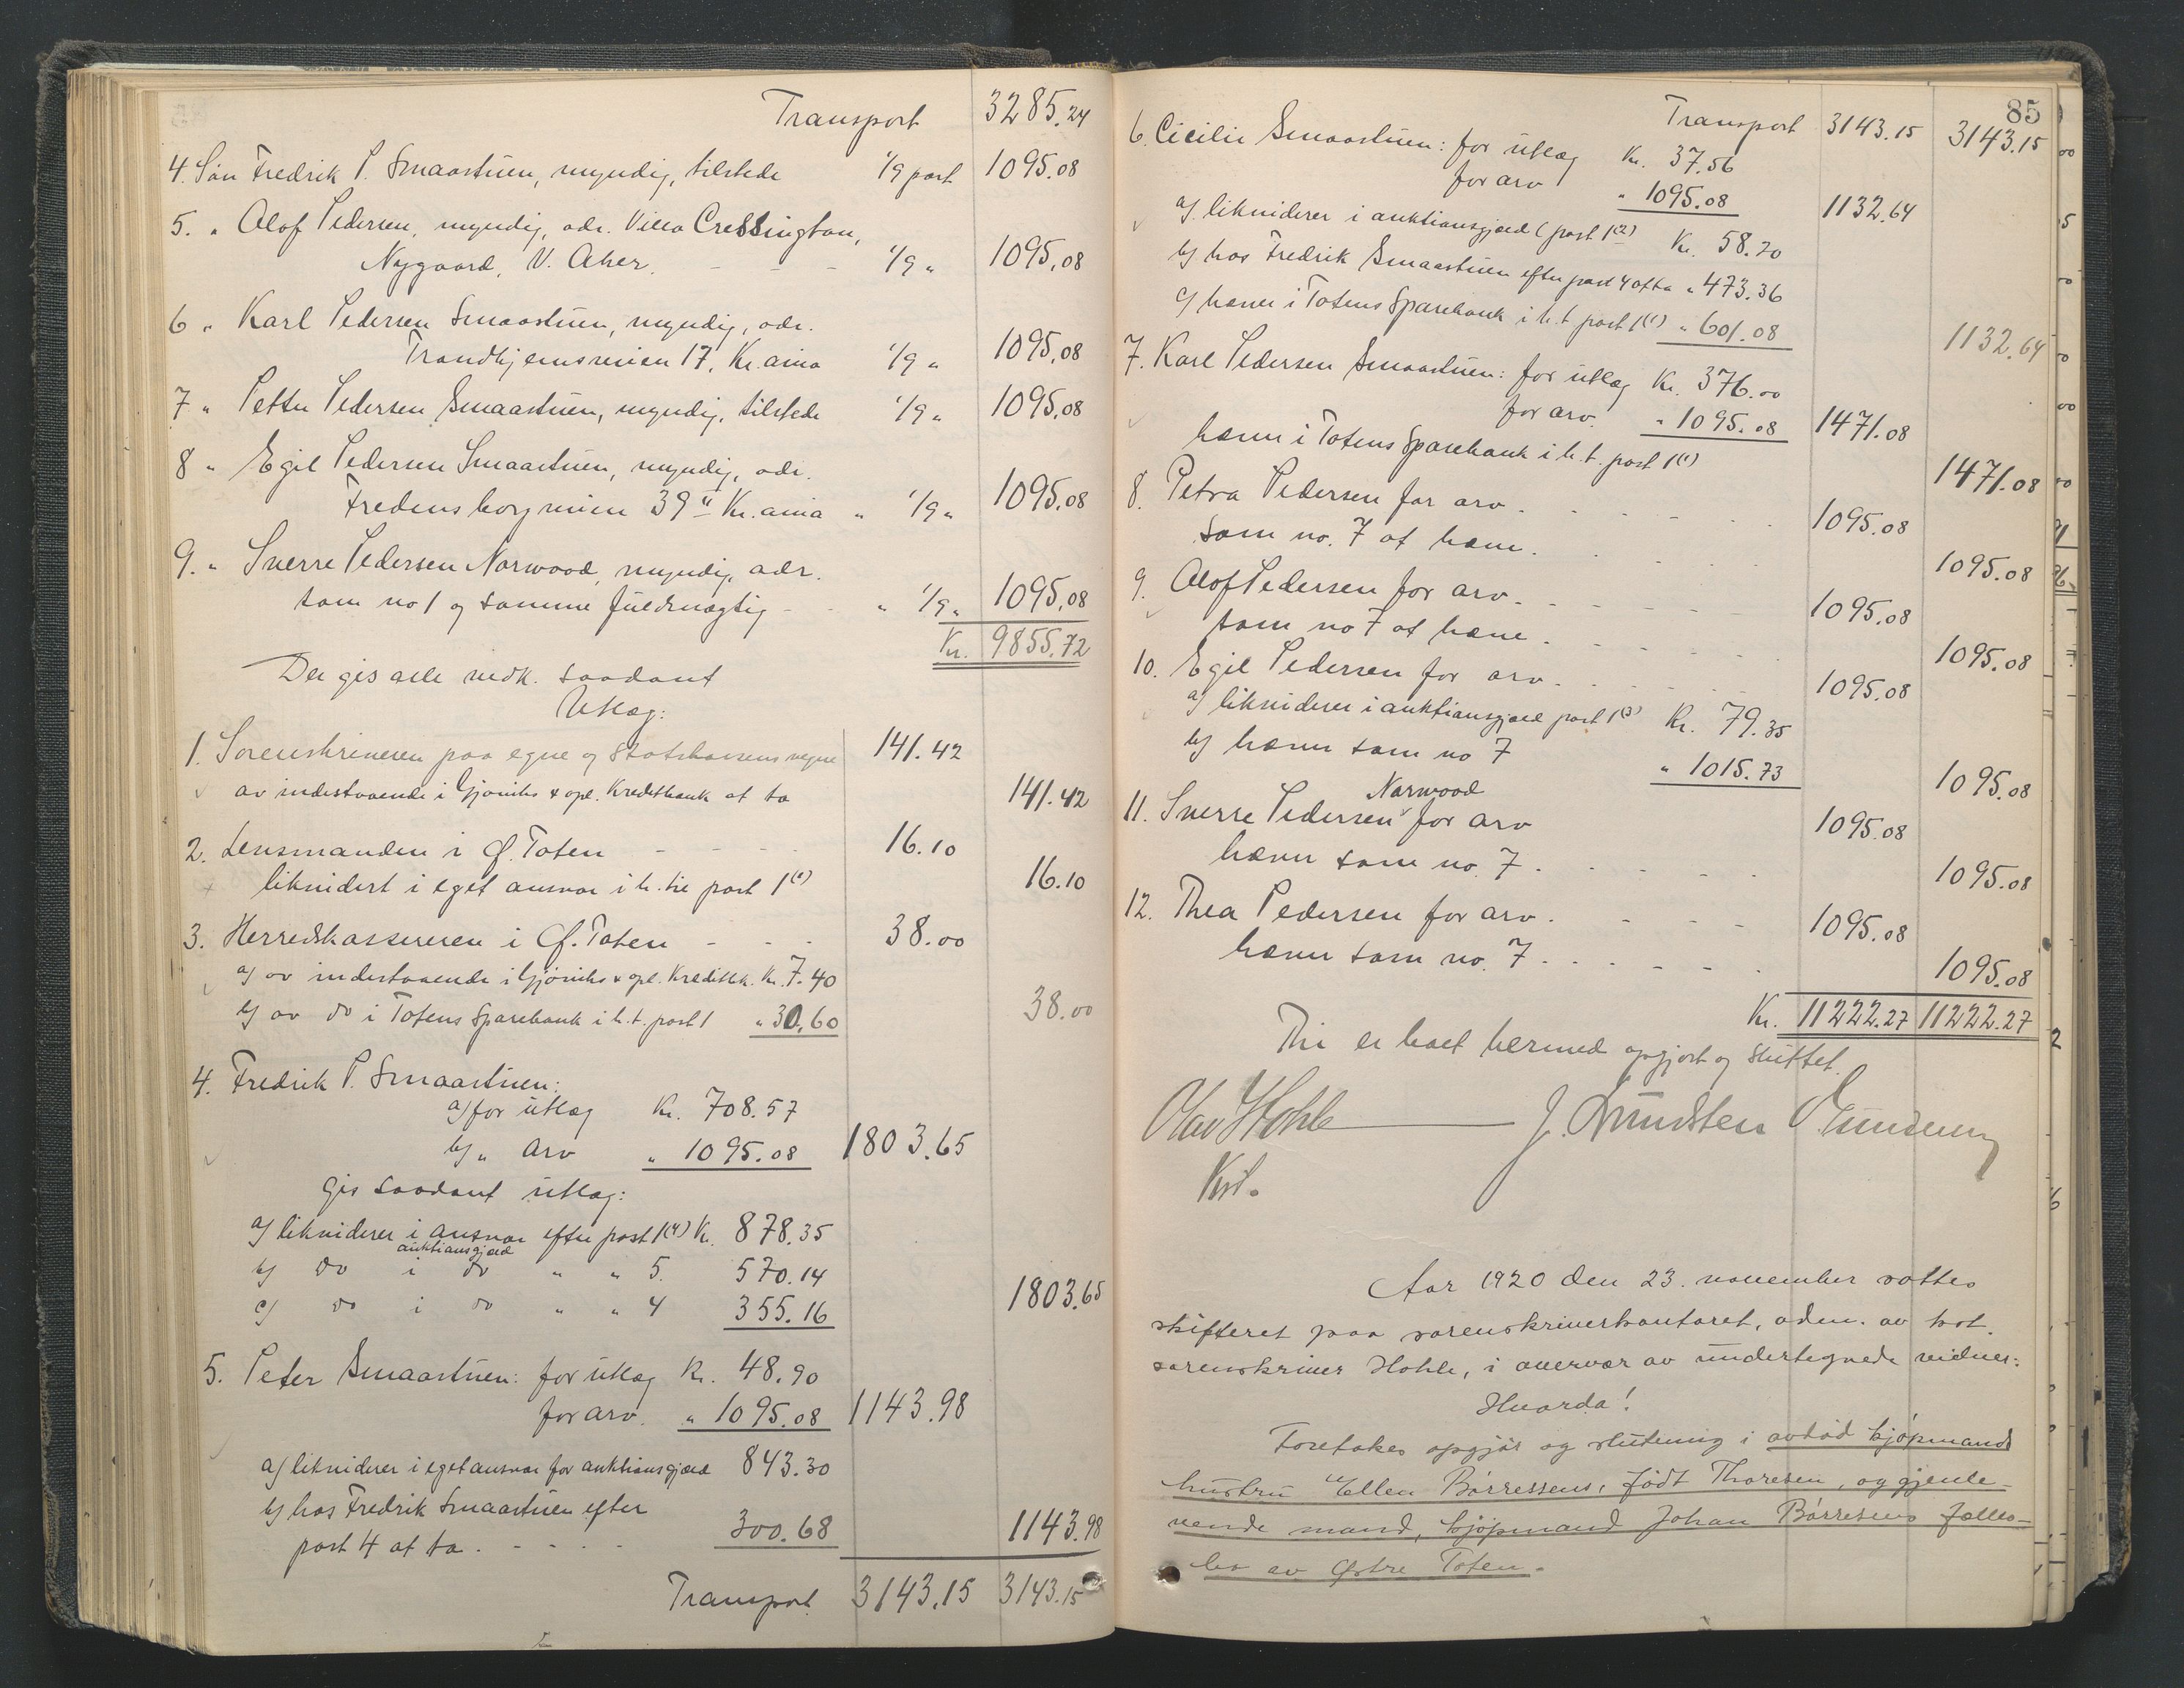 Transport 3285.24
4. Søn Fredrik P. Smaastuen, myndig, tilstede 1/9 part 1095.08
5. " Olof Pedersen, myndig, adr. Villa Cressington,
Nygaard, V. Aker. - - - 1/9 " 1095.08
6 " Karl Pedersen Smaastuen, myndig, adr.
Trondhjemsveien 17, Kr.ania 1/9 " 1095.08
7 " Petter Pedersen Smaastuen, myndig, tilstede 1/9 " 1095.08
8 " Egil Pedersen Smaastuen, myndig, adr.
Fredensborgveien 39 II Kr.ania " 1/9 " 1095.08
9. " Sverre Pedersen Norwood, myndig, adr.
som no 1 og samme fuldmægtig - - " 1/9 " 1095.08
Kr. 9855.72
Der gis alle vedk. saadant
Utlæg:
1. Sorenskriveren paa egne og Statskassens vegne 141.42
av indestaaende i Gjøviks & opl. Kreditbank at ta 141.42
2. Lensmanden i Ø. Toten - - - - 16.10
likvidert i eget ansvar i h. til post 1 (1) 16.10
3. Herredskassereren i Ø. Toten - - - 38.00
a) av indestaaende i Gjøviks & opl. Kreditbk. Kr. 7.40
b) av do i Totens Sparebank i h.t. post 1 " 30.60 38.00
4. Fredrik P. Smaastuen:
a) for utlæg Kr. 708.57
b) " arv " 1095.08 1803.65
gis saadant utlæg:
a) likviderer i ansvar efter post 1 (4) Kr. 878.35
auktiansgjæld
b) do i do " " 5. 570.14
c) do i do " " 4 355.16 1803.65
5. Peter Smaastuen: for utlæg Kr. 48.90
for arv. " 1095.08 1143.98
a) likviderer i eget ansvar for auktiansgjæld 843.30
b) hos Fredrik Smaastuen efter
post 4 at ta. - - - - 300.68 1143.98
Transport 3143.15 3143.15
85
Transport 3143.15 3143.15
6. Cicilie Smaastuen: for utlæg Kr. 37.56
for arv " 1095.08 1132.64
a) likviderer i auktiansgjæld (post 1 (2) Kr. 58.20
b) hos Fredrik Smaastuen efter post 4 at ta " 473.36
c) hæver i Totens Sparebank i h.t. post 1 (1) " 601.08 1132.64
7. Karl Pedersen Smaastuen: for utlæg Kr. 376.00
for arv. " 1095.08 1471.08
hæver i Totens Sparebank i h.t. post 1 (1) 1471.08
8. Petra Pedersen for arv. - - - - 1095.08
som no. 7 at hæve. - - - 1095.08
9. Olof Pedersen for arv. - - - - 1095.08
som no 7 at hæve. - - - - 1095.08
10. Egil Pedersen for arv. - - - - 1095.08
a) likviderer i auktiansgjæld post 1 (3) Kr. 79.35
b) hæver som no 7 " 1015.73 1095.08
Norwood
11. Sverre Pedersen for arv 1095.08
hæver som no. 7. - - - - 1095.08
12. Thea Pedersen for arv. - - - 1095.08
hæver som no. 7. - - - - - 1095.08
Kr. 11222.27 11222.27
Thi er boet hermed opgjort og sluttet.
Olav Hohle J. Lundsten P. Gundersen
Kst.
Aar 1920 den 23. november sattes
skifteret paa sorenskriverkontoret, adm. av kst.
sorenskriver Hohle, i overvær av undertegnede vidner:
Hvorda!
Foretokes opgjør og slutning i avdød kjøpmands
hustru Ellen Børressens, født Thoresen, og gjenle-
vende mand, kjøpmand Johan Børresens fælles-
bo av Østre Toten.